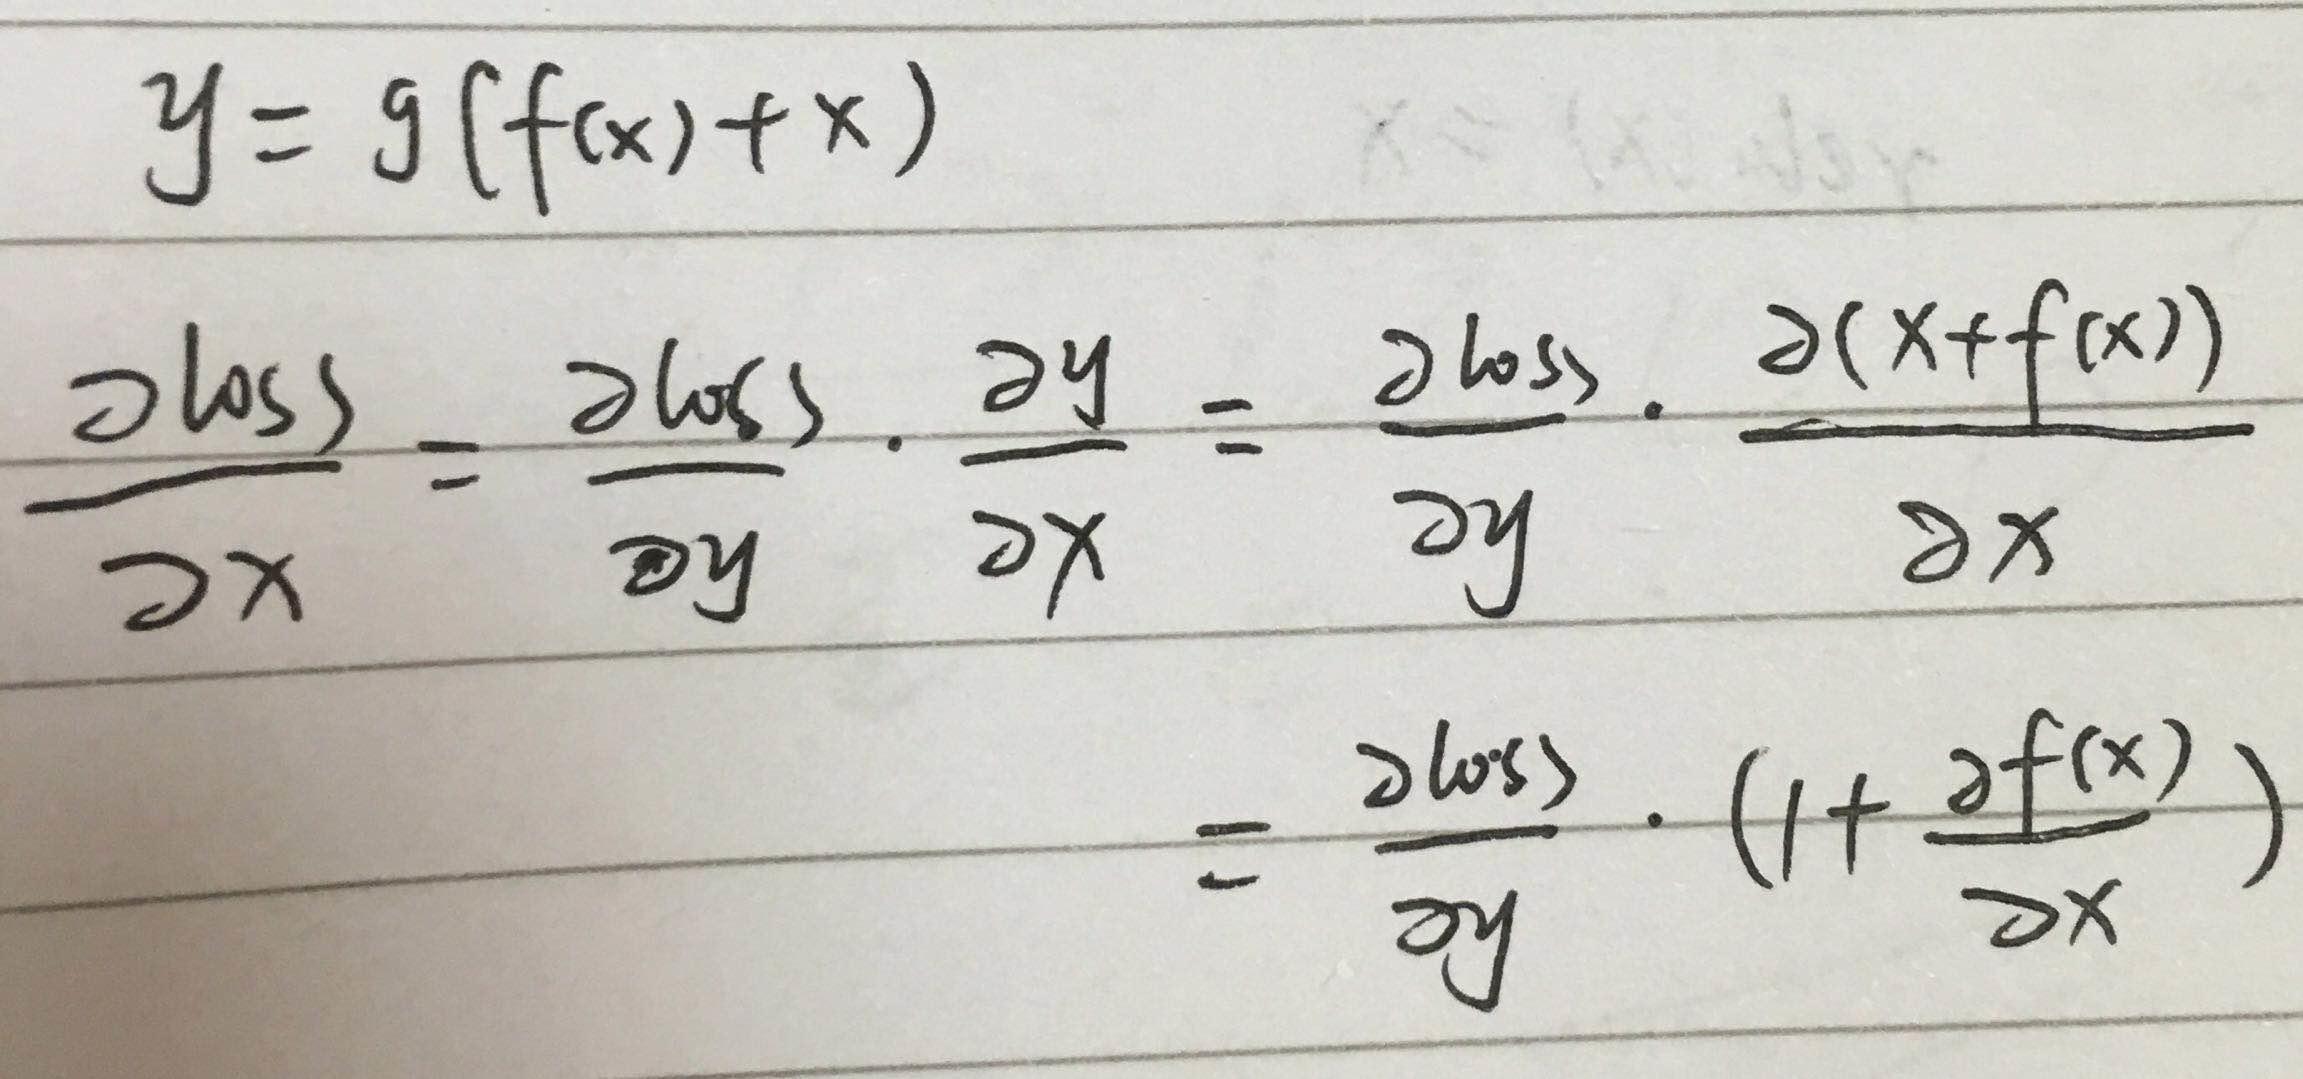 y = g(f(x) + x)
∂loss/∂x = ∂loss/∂y · ∂y/∂x = ∂loss/∂y · ∂(x+f(x))/∂x
= ∂loss/∂y · (1 + ∂f(x)/∂x)